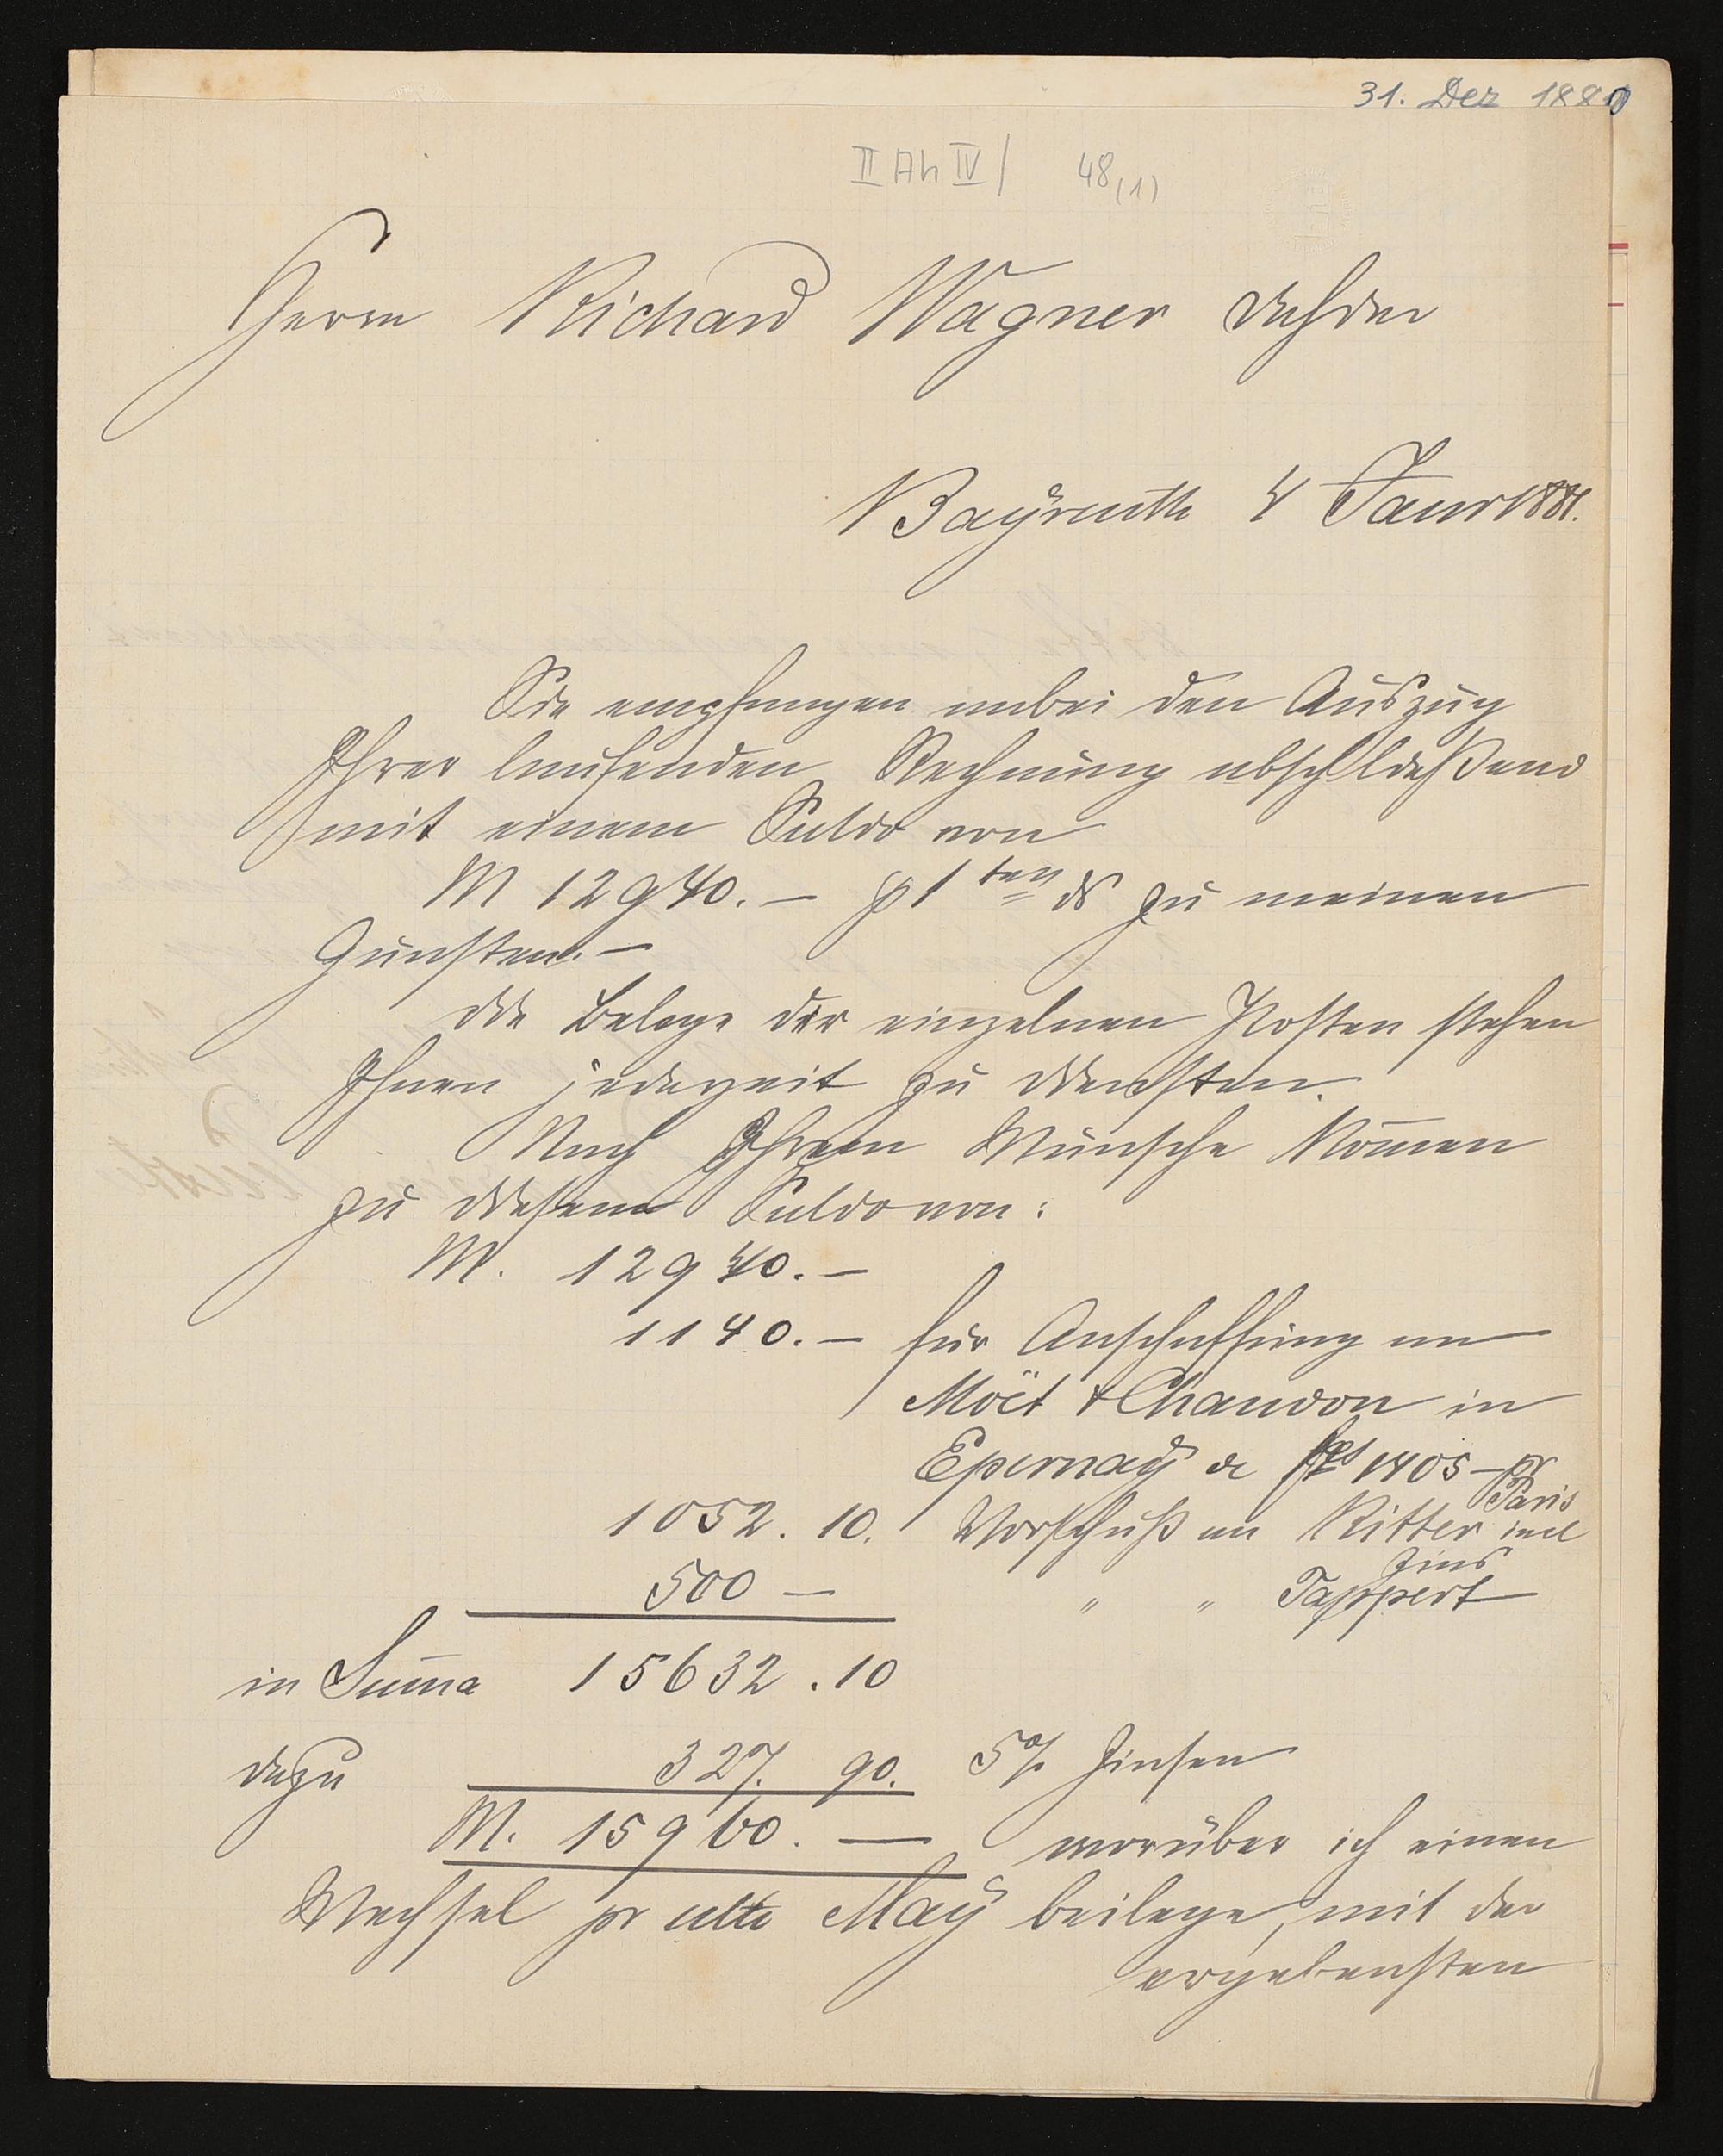 31. Dez 1880
II Ah IV / 48 (1)
Herrn Richard Wagner dahier
Bayreuth 4 Janr 1881.
Sie empfangen anbei den Auszug
Ihrer laufenden Rechnung abschließend
mit einem Saldo von
M 12940.— p 1ten ds zu meinen
Gunsten.—
Die Belege der einzelnen Posten stehen
Ihnen jederzeit zu Diensten.
Nach Ihrem Wunsche kom̄en
zu diesem Saldo von:
M. 12940.—
1140.— für Anschaffung an
Moët & Chandon in
Epernay de 1405 — pr
Paris
1052. 10. Vorschuß an Ritter incl
Zins
500 — " " Tappert
in Sum̄a 15632.10
dazu 327. 90. 5% Zinsen
M. 15960. — worüber ich einen
Wechsel pr ulto May beilege, mit der
ergebensten